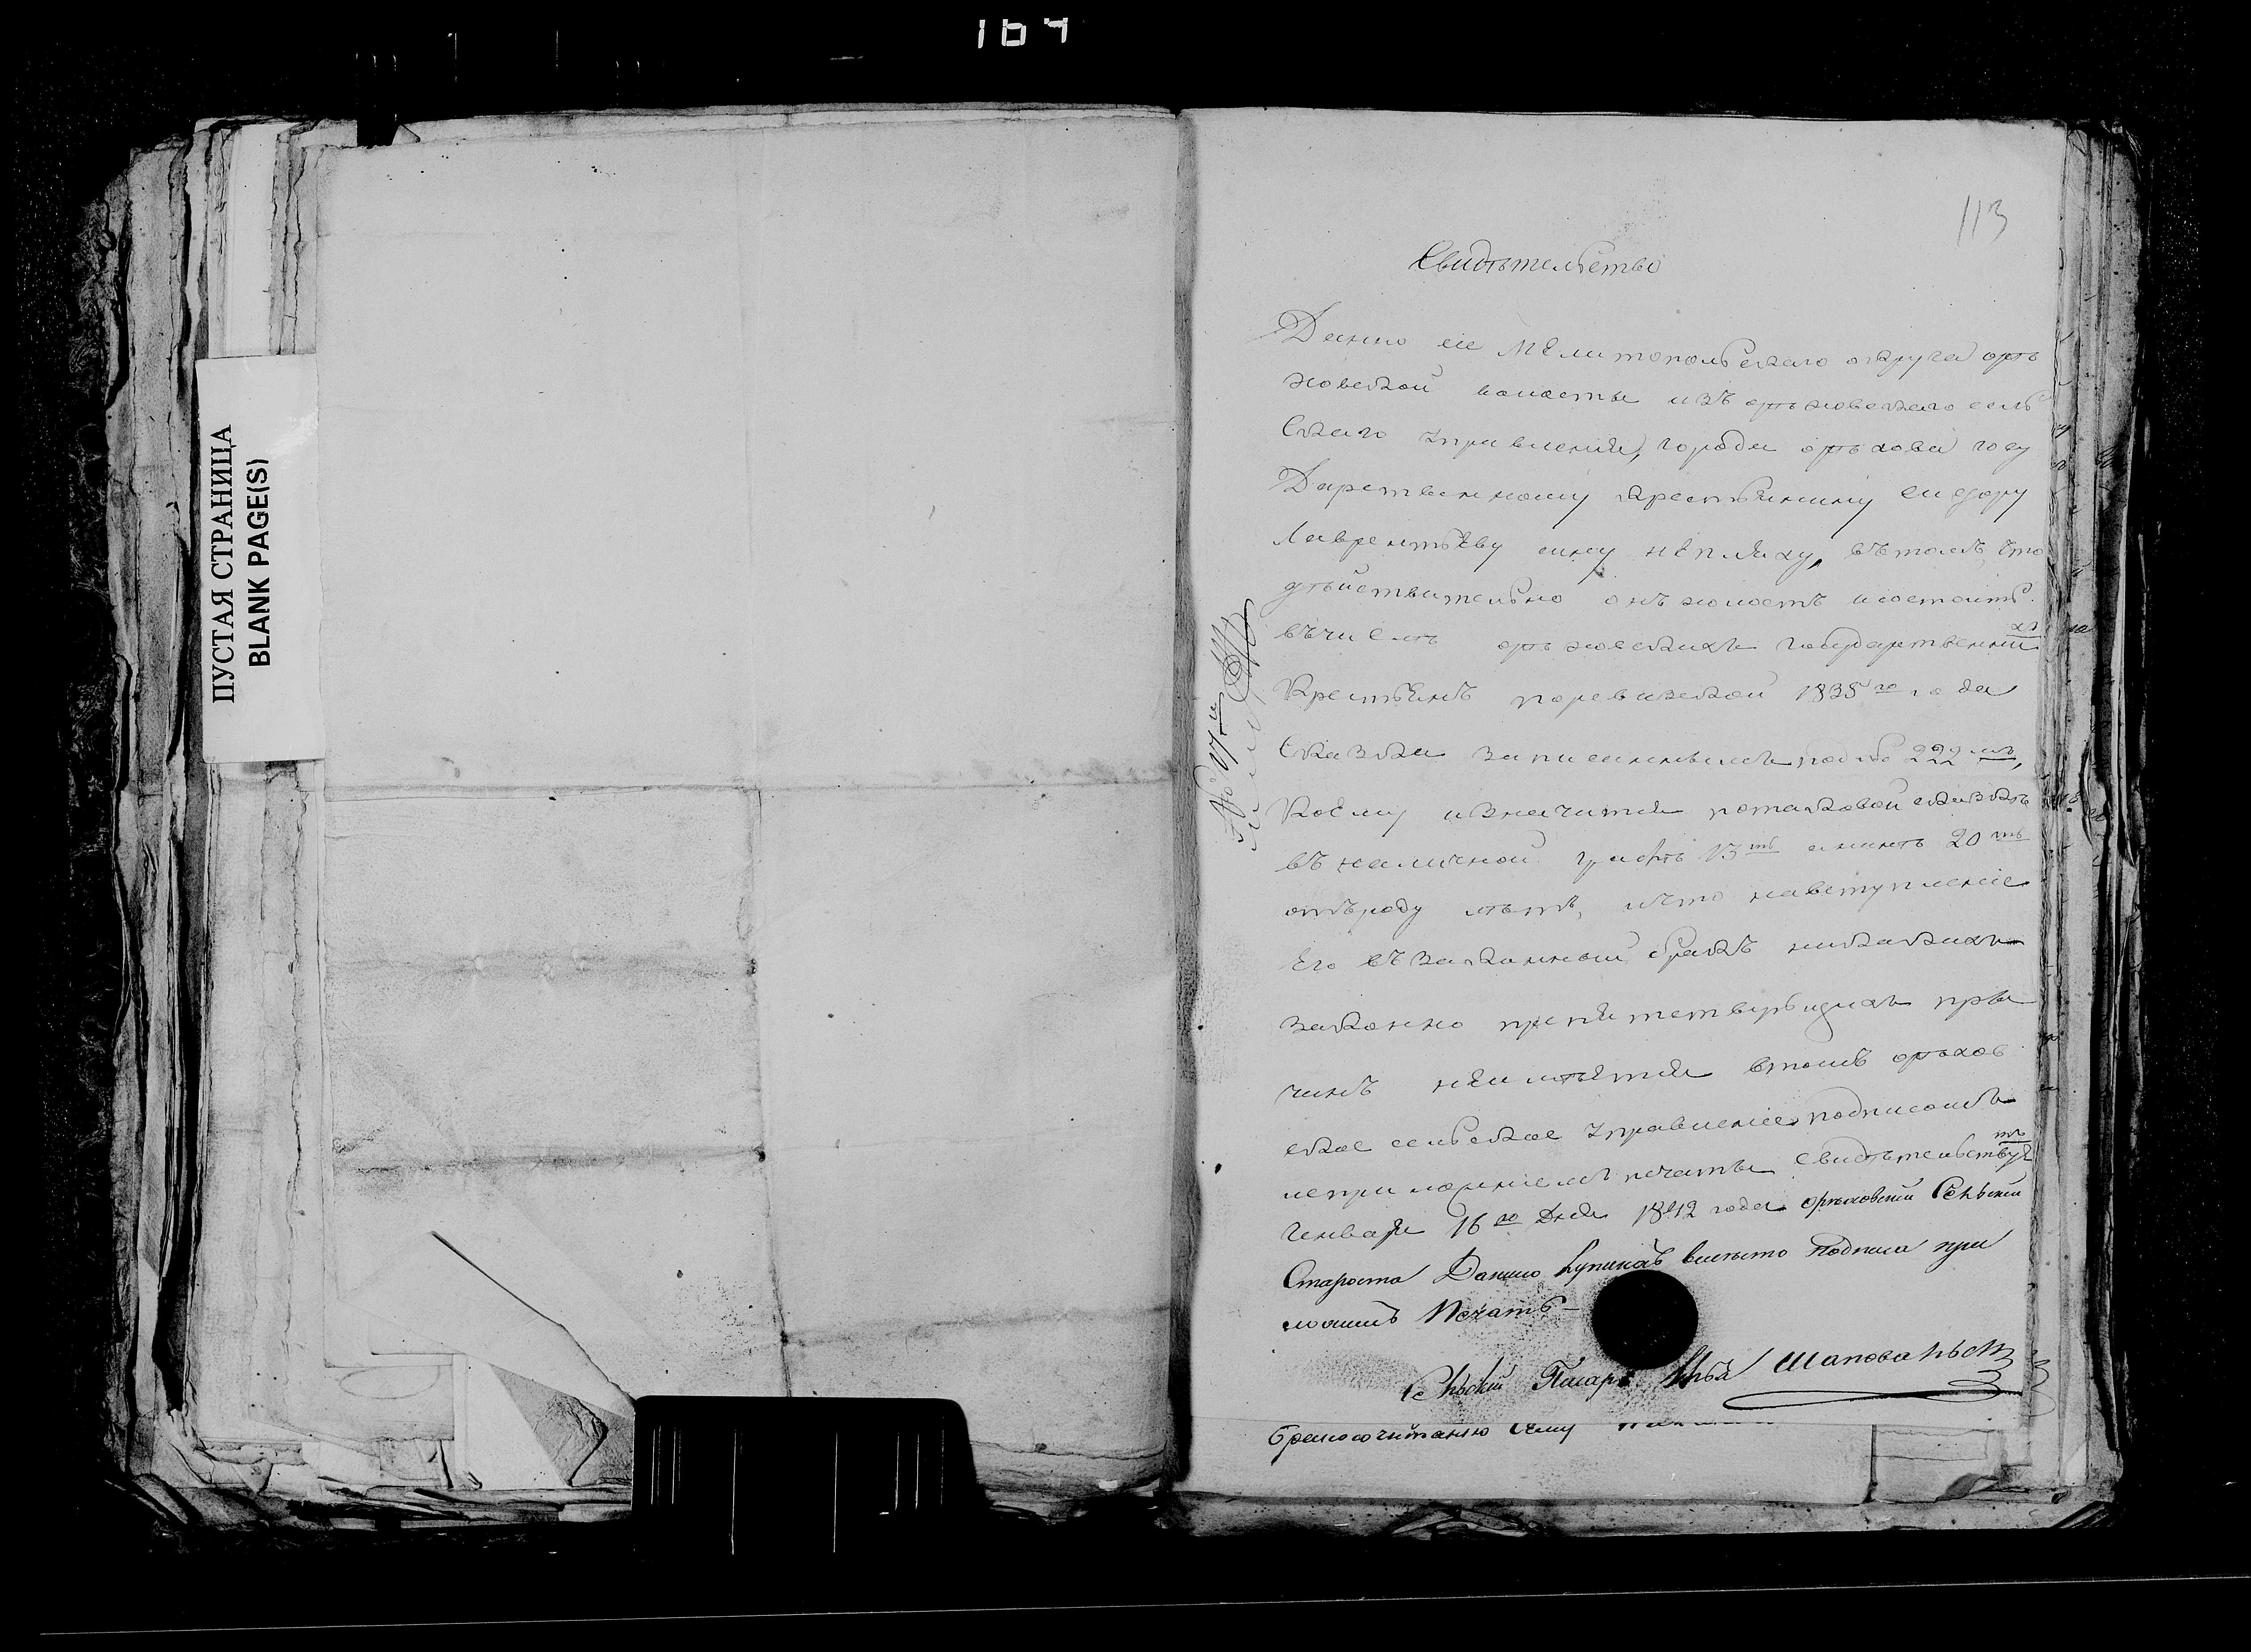 164
ПУСТАЯ СТРАНИЦА
BLANK PAGE(S)
113
Свидѣтельство
Данно сіе Мелитопольскаго округа орѣ
ховской волости изъ орѣховскаго сель
скаго управленія, города орѣхова госу
Дарственному крестьянину сидору
Лаврентьеву сину непляху, въ томъ, что
дѣйствительно онъ холостъ и состоитъ
въ числѣ орѣховскихъ государственныхъ
Крестьянъ поревизской 1835го года
Сказки записаннымъ под № 222мъ,
Коему и значитця потаковой сказкѣ
въ наличной графѣ 13ть а нынѣ 20ть
отъ роду лѣтъ, и что на вступленіе
Его въ законный бракъ никакихъ
законно препятствующихъ при
чинъ неимѣетця втомъ орѣхов
ское сельское управленіе подписомъ
и сприложеніемъ печати свидѣтельствуетъ
Генваря 16го Дня 1842 года орѣховскій Сельскій
Староста Данило вмѣсто Подписа при
ложилъ Печать
Сельскій Писарь Шаповальск
бракосочитанію Сему